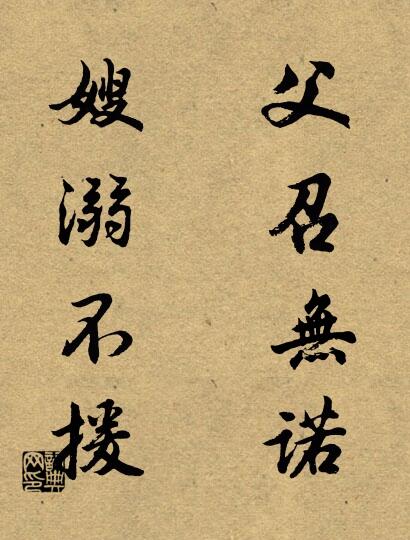 父召無諾
嫂溺不援